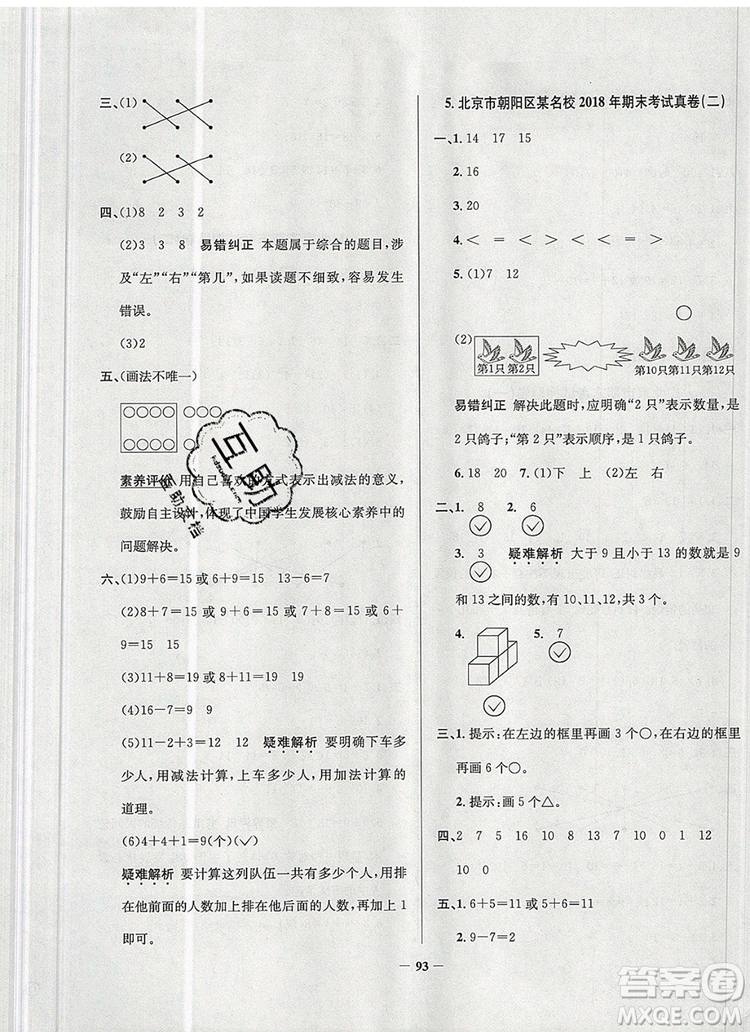 三、(1)
(2)
四、(1)8 2 3 2
(2)3 3 8 易错纠正 本题属于综合的题目,涉
及“左”“右”“第几”,如果读题不细致,容易发生
错误。
(3)2
五、(画法不唯一)
素养评价 用自己喜欢的方式表示出减法的意义,
鼓励自主设计,体现了中国学生发展核心素养中的
问题解决。
六、(1)9+6=15 或 6+9=15 13-6=7
(2)8+7=15 或 7+8=15 7+8=15 或 8+7
=15 15
(3)11+8=19 或 8+11=19 19
(4)16-7=9 9
(5)11-2+3=12 12 疑难解析 要明确下车多
少人,用减法计算,上车多少人,用加法计算的
道理。
(6)4+4+1=9(个)(✓)
疑难解析 要计算这列队伍一共有多少个人,用排
在他前面的人数加排在他后面的人数,再加上 1
即可。
5. 北京市朝阳区某名校 2018 年期末考试真卷(二)
一、1. 14 17 15
2. 16
3. 20
4. < = < > <
5. (1)7 12
(2)
第1只 第2只 第10只 第11只 第12只
易错纠正 解决此题时,应明确“2 只”表示数量,是
2 只鸽子;“第 2 只”表示顺序,是一只鸽子。
6. 18 20 7. (1)下 上 (2)左 右
二、1. 8 2. 6
✓ ✓
3. 3 疑难解析 大于 9 且小于 13 的数就是 9
✓
和 13 之间的数,有 10、11、12,共 3 个。
4. 5. 7
✓ ✓
三、1. 提示:在左边的框里再画 3 个○,在右边的框里
再画 6 个○。
2. 提示:画 5 个△。
四、2 7 5 16 10 8 13 7 10 0 1 12
10 0
五、1. 6+5=11 或 5+6=11
2. 9-7=2
— 93 —
互助
互助文档
答案圈
MXQE.COM